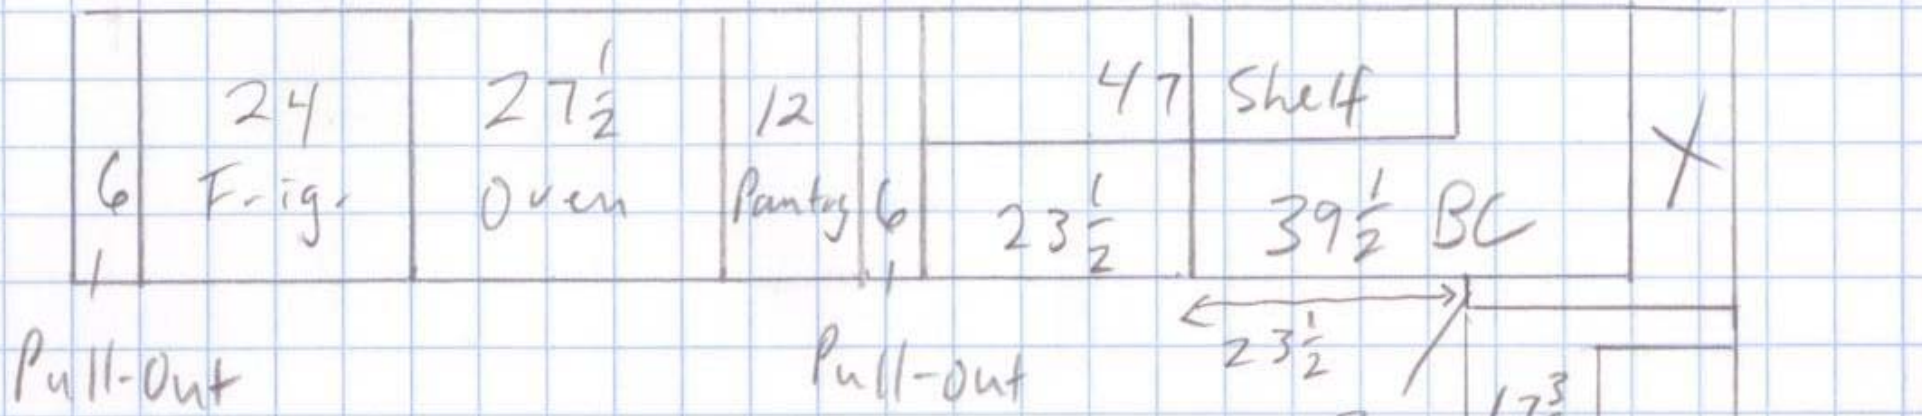 24 27 1/2 12 47 Shelf
6 Frig. Oven Pantry 6 23 1/2 39 1/2 BC X
23 1/2
Pull-Out Pull-Out
17 3